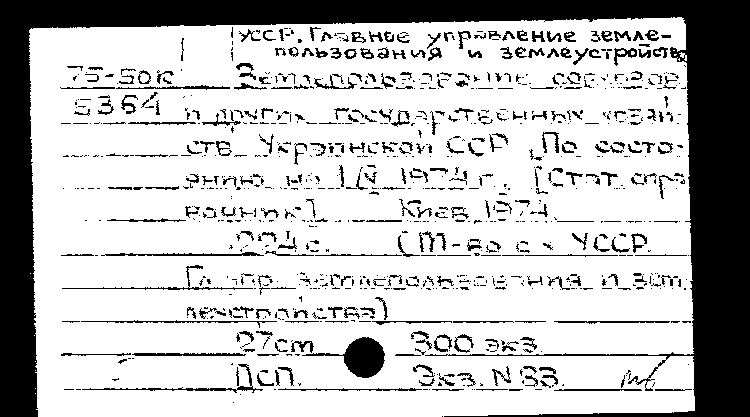 УССР. Главное управление земле-
пользования и землеустройства
75-50к Землепользование совхозов
5364 и других государственных хозяй-
ств Украинской ССР. По состо-
янию на 1/IV 1974 г. [Стат. спра
вочник]. Киев, 1974.
224 с. (М-во с х УССР.
Гл. упр. землепользования и зем-
леустройства)
27 cm 300 экз.
ДСП. Экз. N 83.